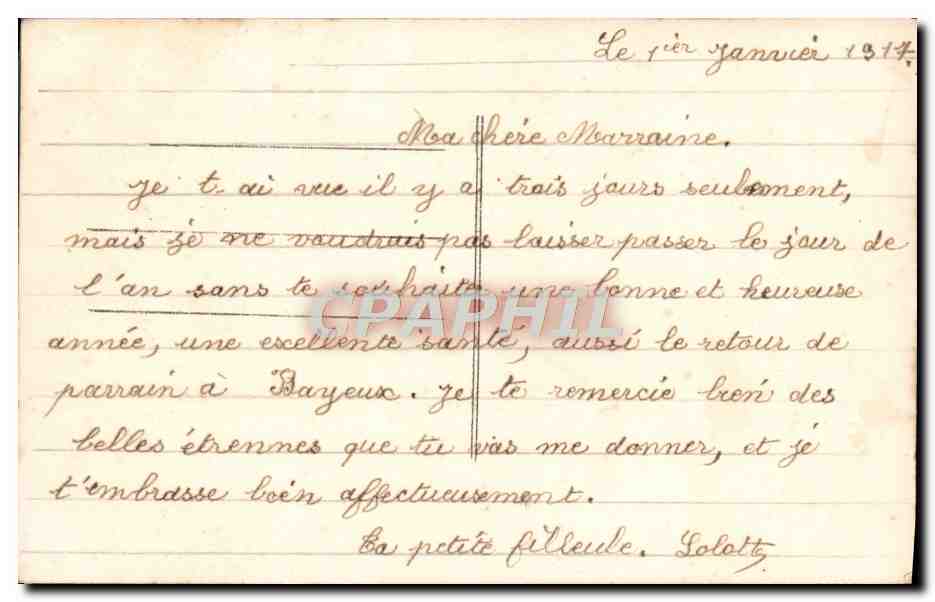 Le 1ier Janvier 1917.
Ma chère Marraine.
Je t ai vue il y a trois jours seulement,
mais je ne voudrais pas laisser passer le jour de
l'an sans te souhaiter une bonne et heureuse
CPAPHIL
année, une excellente santé, aussi le retour de
parrain à Bayeux. Je te remercie bien des
belles étrennes que tu vas me donner, et je
t'embrasse bien affectueusement.
Ta petite filleule. Lolotte